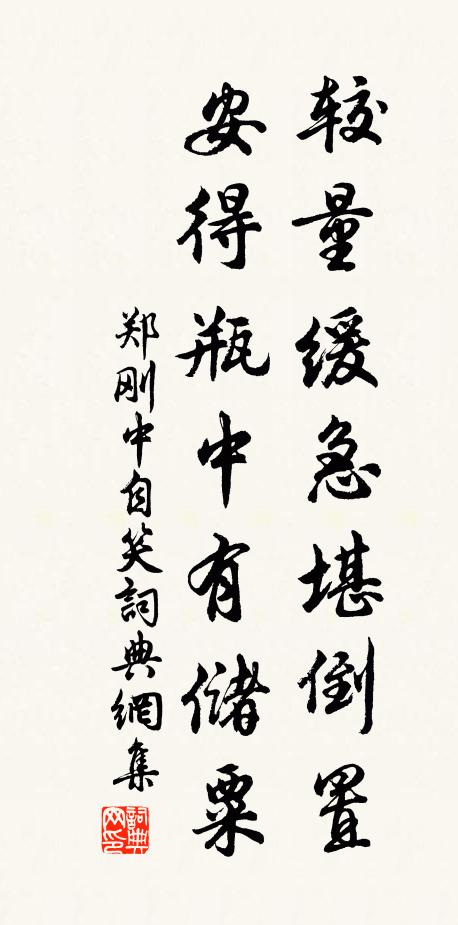 较量缓急堪倒置
安得瓶中有储粟
郑刚中自笑詞典網集
詞典网印